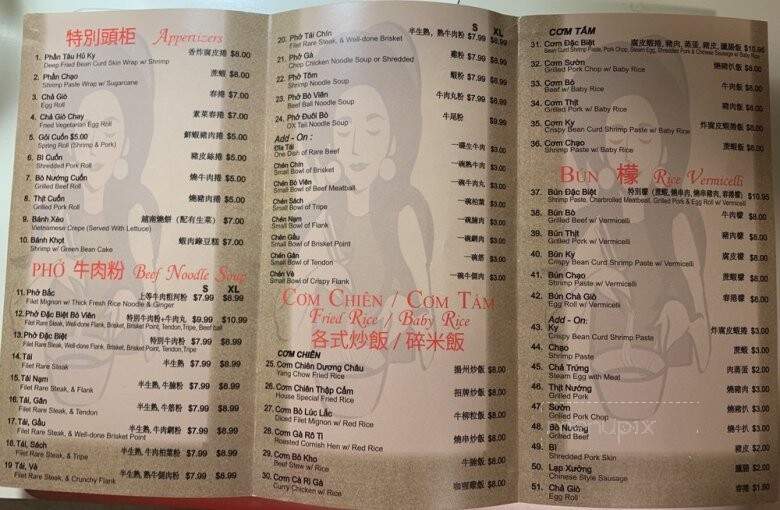 特別頭柜 Appetizers
1. Phần Tàu Hủ Ky 香炸腐皮捲 $8.00
Deep Fried Bean Curd Skin Wrap w/ Shrimp
2. Phần Chạo 蔗蝦 $8.00
Shrimp Paste Wrap w/ Sugarcane
3. Chả Giò 春捲 $7.00
Egg Roll
4. Chả Giò Chay 素菜春捲 $7.00
Fried Vegetarian Egg Roll
5. Gỏi Cuốn $5.00 鮮蝦豬肉捲 $5.00
Spring Roll (Shrimp & Pork)
6. Bì Cuốn 豬皮絲捲 $5.00
Shredded Pork Roll
7. Bò Nướng Cuốn 燒牛肉捲 $5.00
Grilled Beef Roll
8. Thịt Cuốn 燒豬肉捲 $5.00
Grilled Pork Roll
9. Bánh Xèo 越南燒餅（配有生菜） $7.00
Vietnamese Crepe (Served With Lettuce)
10. Bánh Khọt 蝦肉綠豆糕 $7.00
Shrimp w/ Green Bean Cake
PHỞ 牛肉粉 Beef Noodle Soup
S XL
11. Phở Bắc 上等牛肉粗河粉 $7.99 $8.99
Filet Mignon w/ Thick Fresh Rice Noodle & Ginger
12. Phở Đặc Biệt Bò Viên 特別牛肉粉+牛肉丸 $9.99 $10.99
Filet Rare Steak, Well-done Flank, Brisket, Brisket Point, Tendon, Tripe, Beef ball
13. Phở Đặc Biệt 特別牛肉粉 $7.99 $8.99
Filet Rare Steak, Well-done Flank, Brisket, Brisket Point, Tendon, Tripe
14. Tái 半生熟 $7.99 $8.99
Filet Rare Steak
15. Tái Nạm 半生熟, 牛腩粉 $7.99 $8.99
Filet Rare Steak, & Flank
16. Tái, Gân 半生熟, 牛筋粉 $7.99 $8.99
Filet Rare Steak, & Tendon
17. Tái, Gầu 半生熟, 牛肉網粉 $7.99 $8.99
Filet Rare Steak, & Well-done Brisket Point
18. Tái, Sách 半生熟, 牛肉柏葉粉 $7.99 $8.99
Filet Rare Steak, & Tripe
19 Tái, Vè 半生熟, 熟牛側肉粉 $7.99 $8.99
Filet Rare Steak, & Crunchy Flank
S XL
20. Phở Tái Chín 半生熟, 熟牛肉粉 $7.99 $8.99
Filet Rare Steak, & Well-done Brisket
21. Phở Gà 雞粉 $7.99 $8.99
Chop Chicken Noodle Soup or Shredded
22. Phở Tôm 蝦粉 $7.99 $8.99
Shrimp Noodle Soup
23. Phở Bò Viên 牛肉丸粉 $7.99 $8.99
Beef Ball Noodle Soup
24. Phở Đuôi Bò 牛尾粉 $9.99
OX Tail Noodle Soup
Add - On :
Đĩa Tái 一碟生牛肉 $3.00
One Dish of Rare Beef
Chén Chín 一碗熟牛肉 $3.00
Small Bowl of Brisket
Chén Bò Viên 一碗牛肉丸 $3.00
Small Bowl of Beef Meatball
Chén Sách 一碗柏葉 $3.00
Small Bowl of Tripe
Chén Nạm 一碗腩肉 $3.00
Small Bowl of Flank
Chén Gầu 一碗網肉 $3.00
Small Bowl of Brisket Point
Chén Gân 一碗筋 $3.00
Small Bowl of Tendon
Chén Vè 一碗牛側肉 $3.00
Small Bowl of Crispy Flank
CƠM CHIÊN / CƠM TẤM
Fried Rice / Baby Rice
各式炒飯 / 碎米飯
CƠM CHIÊN
25. Cơm Chiên Dương Châu 揚州炒飯 $8.00
Yang Chow Fried Rice
26. Cơm Chiên Thập Cẩm 招牌炒飯 $8.00
House Special Fried Rice
27. Cơm Bò Lúc Lắc 牛柳粒飯 $8.00
Diced Filet Mignon w/ Red Rice
28. Cơm Gà Rô Ti 燒串炒飯 $8.00
Roasted Cornish Hen w/ Red Rice
29. Cơm Bò Kho 牛腩飯 $8.00
Beef Stew w/ Rice
30. Cơm Cà Ri Gà 咖喱雞飯 $8.00
Curry Chicken w/ Rice
CƠM TẤM
31. Cơm Đặc Biệt 腐皮蝦捲, 豬肉, 蒸蛋, 豬皮, 臘腸飯 $10.95
Bean Curd Shrimp Paste, Pork Chop, Steam Egg, Shredded Pork & Chinese Sausage w/ Baby Rice
32. Cơm Sườn 燒豬扒飯 $8.00
Grilled Pork Chop w/ Baby Rice
33. Cơm Bò 牛肉飯 $8.00
Grilled Beef w/ Baby Rice
34. Cơm Thịt 豬肉飯 $8.00
Grilled Pork w/ Baby Rice
35. Cơm Ky 炸腐皮蝦捲飯 $8.00
Crispy Bean Curd Shrimp Paste w/ Baby Rice
36. Cơm Chạo 蔗蝦飯 $8.00
Shrimp Paste w/ Baby Rice
BÚN 檬 Rice Vermicelli
37. Bún Đặc Biệt 特別檬 (蔗蝦, 燒串肉, 燒串豬肉, 春捲檬) $10.95
Shrimp Paste, Charbroiled Meatball, Grilled Pork & Egg Roll w/ Vermicelli
38. Bún Bò 牛肉檬 $8.00
Grilled Beef w/ Vermicelli
39. Bún Thịt 豬肉檬 $8.00
Grilled Pork w/ Vermicelli
40. Bún Ky 腐皮檬 $8.00
Crispy Bean Curd Shrimp Paste w/ Vermicelli
41. Bún Chạo 蔗蝦檬 $8.00
Shrimp Paste w/ Vermicelli
42. Bún Chả Giò 春捲檬 $8.00
Egg Roll w/ Vermicelli
Add-On:
43. Ky 炸腐皮蝦捲 $3.00
Crispy Bean Curd Shrimp Paste
44. Chạo 蔗蝦 $3.00
Shrimp Paste
45. Chả Trứng 肉蒸蛋 $2.00
Steam Egg with Meat
46. Thịt Nướng 燒豬肉 $3.00
Grilled Pork
47. Sườn 燒豬扒 $3.00
Grilled Pork Chop
48. Bò Nướng 燒牛扒 $3.00
Grilled Beef
49. Bì 豬皮 $2.00
Shredded Pork Skin
50. Lạp Xưởng 臘腸 $2.00
Chinese Style Sausage
51. Chả Giò 春捲 $1.80
Egg Roll